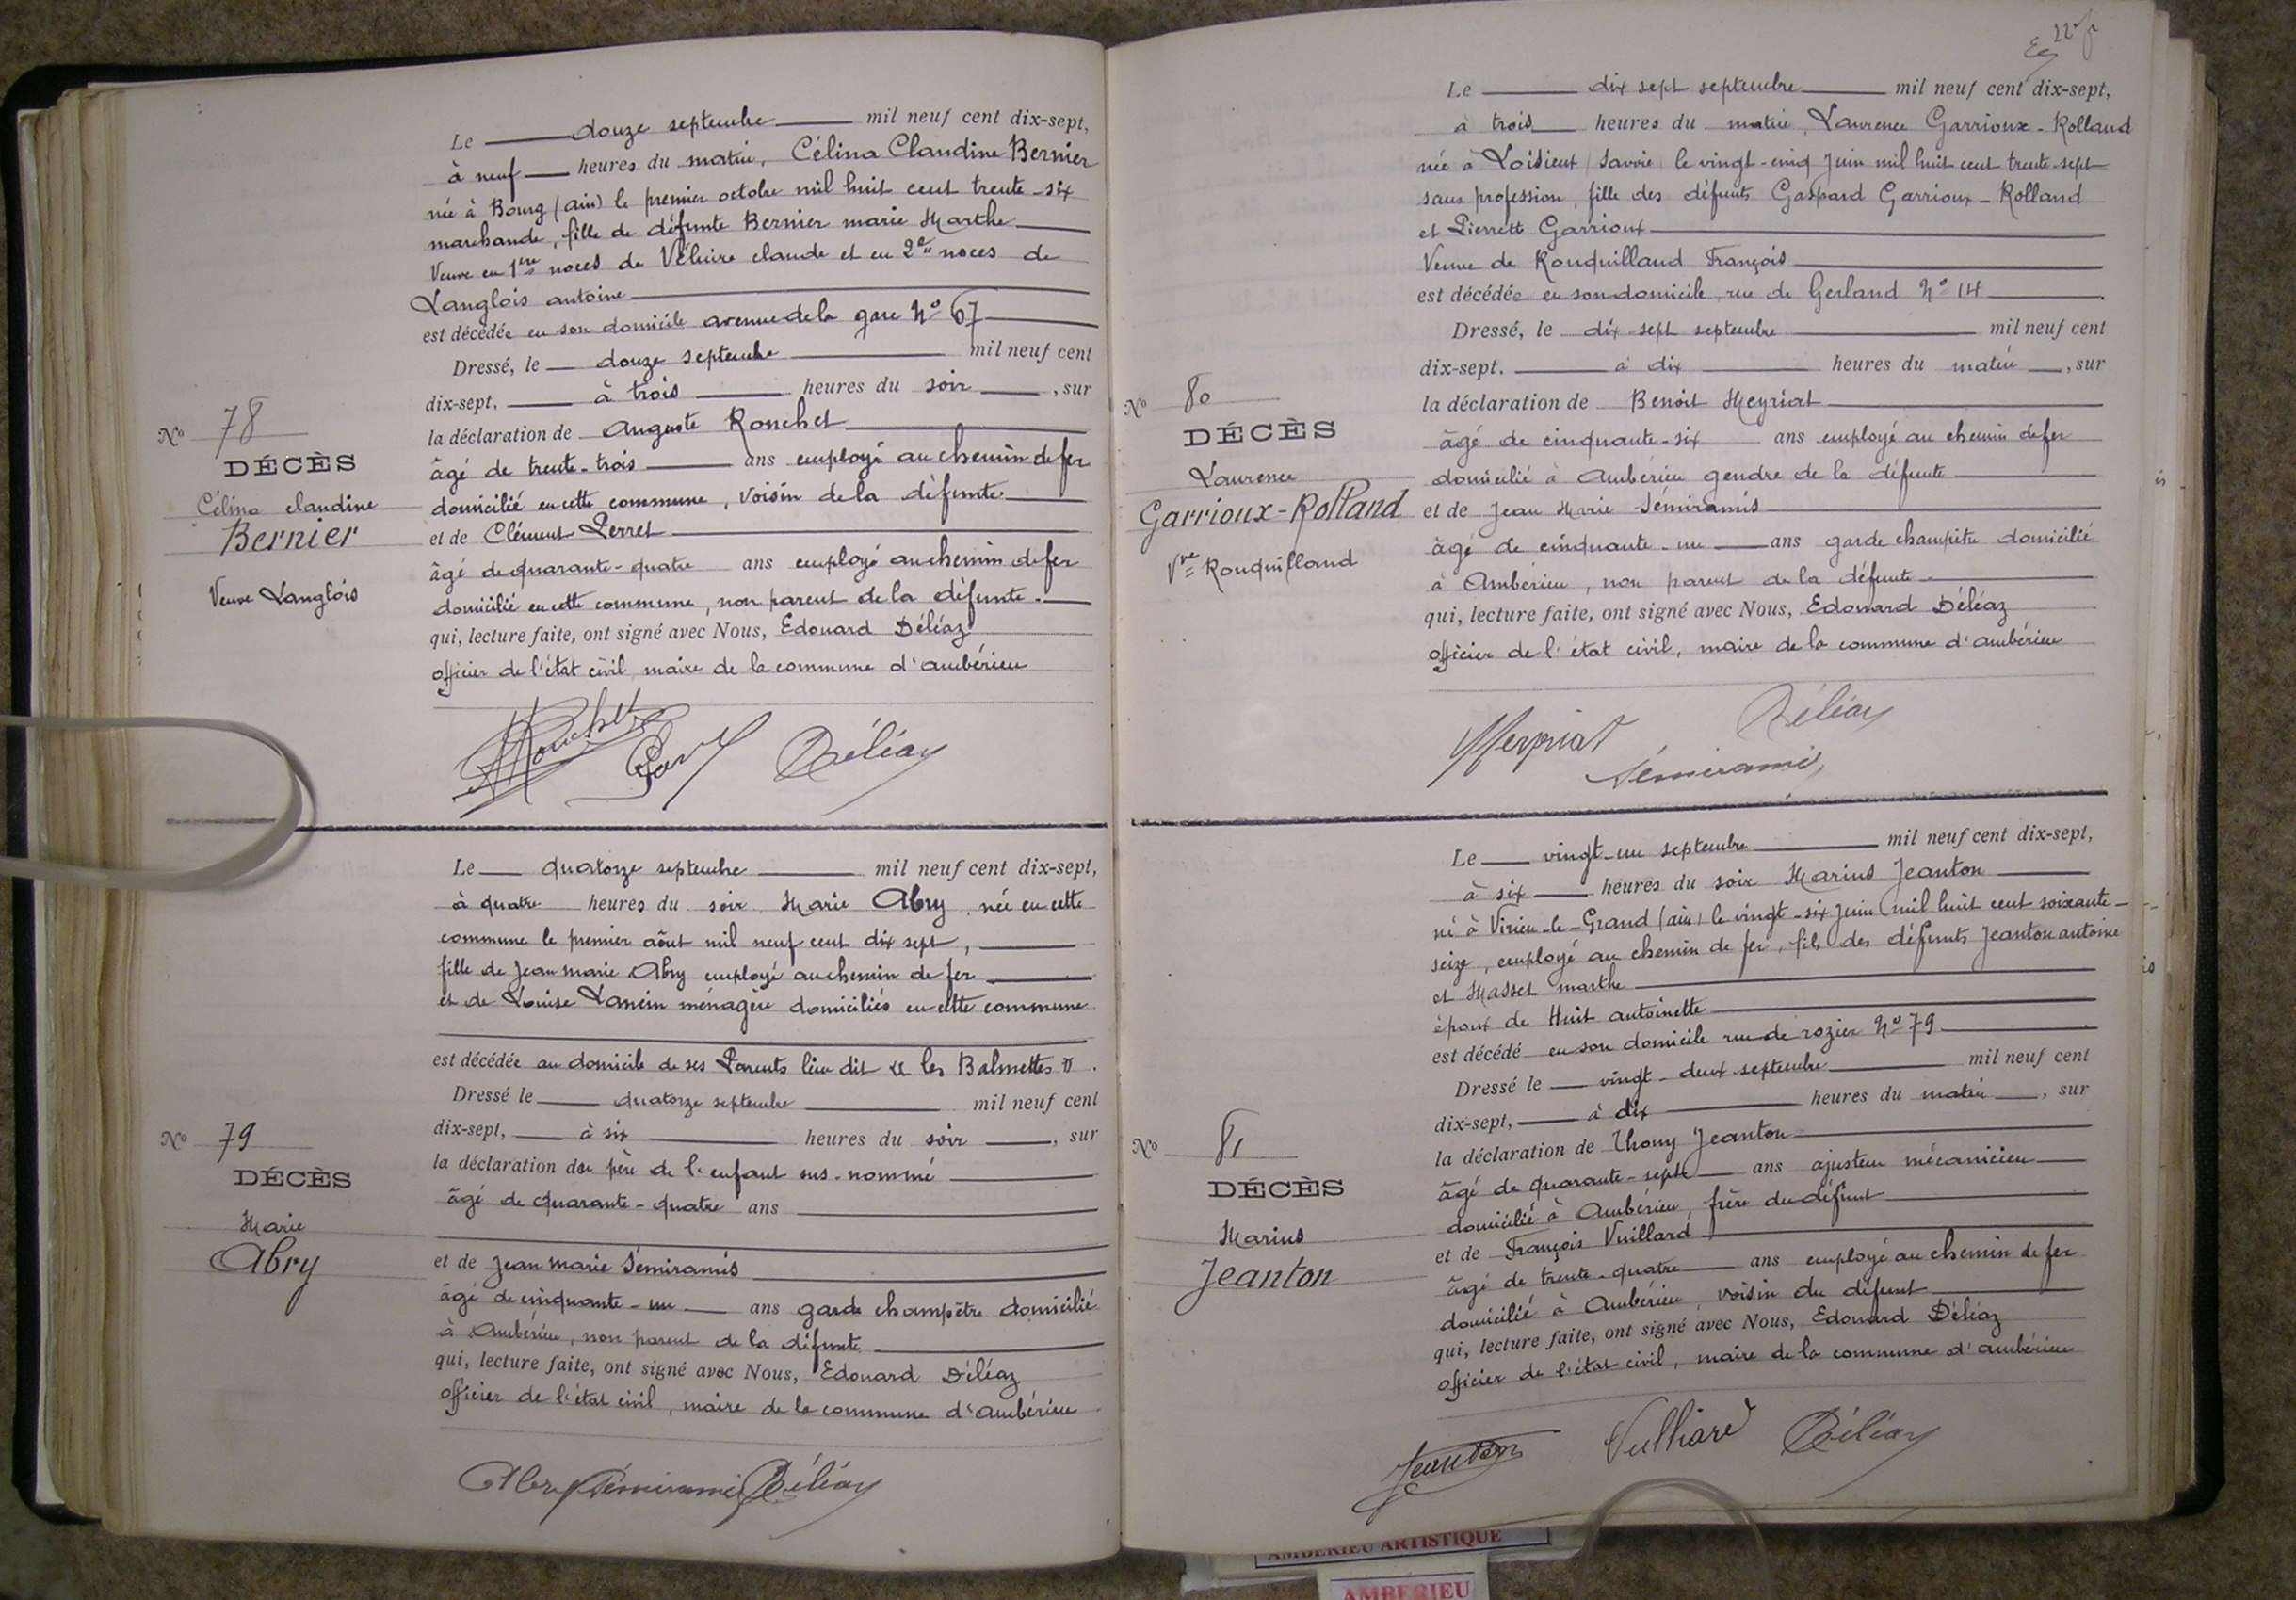 Le douze septembre mil neuf cent dix-sept,
à neuf heures du matin, Célina Claudine Bernier
née à Bourg (ain) le premier octobre mil huit cent trente-six
marchande, fille de défunte Bernier marie Marthe
Veuve en 1ères noces de claude et en 2es noces de
Langlois antoine
est décédée en son domicile avenue de la gare No 67
Dressé, le douze septembre mil neuf cent
dix-sept, à trois heures du soir, sur
la déclaration de auguste Ronchet
âgé de trente-trois ans employé au chemin de fer
domicilié en cette commune, voisin de la défunte
et de Clément Perret
âgé de quarante-quatre ans employé au chemin de fer
domicilié en cette commune, non parent de la défunte.
qui, lecture faite, ont signé avec Nous, Edouard Déléaz
officier de l'état civil, maire de la commune d'ambérieu
No 78
DÉCÈS
Célina claudine
Bernier
Veuve Langlois
Ronchet Déléaz
Le quatorze septembre mil neuf cent dix-sept,
à quatre heures du soir Marie Abry, née en cette
commune le premier août mil neuf cent dix sept,
fille de Jean marie Abry employé au chemin de fer
et de Louise Lancin ménagère domiciliés en cette commune
est décédée au domicile de ses Parents lieu dit « les Balmettes ».
Dressé le quatorze septembre mil neuf cent
dix-sept, à six heures du soir, sur
la déclaration du père de l'enfant sus-nommé
âgé de quarante-quatre ans
et de Jean marie Sémiramis
âgé de cinquante-un ans garde champêtre domicilié
à Ambérieu, non parent de la défunte
qui, lecture faite, ont signé avec Nous, Edouard Déléaz
officier de l'état civil, maire de la commune d'ambérieu
No 79
DÉCÈS
Marie
Abry
Abry Sémiramis Déléaz
22
Le dix sept septembre mil neuf cent dix-sept,
à trois heures du matin, Laurence Garrioux-Rolland
née à Loisieux (Savoie) le vingt-cinq Juin mil huit cent trente-sept
sans profession, fille des défunts Gaspard Garrioux-Rolland
et Pierrette Garrioux
Veuve de Rouquilland François
est décédée en son domicile, rue de Gerland No 14
Dressé, le dix-sept septembre mil neuf cent
dix-sept. à dix heures du matin, sur
la déclaration de Benoit Meyriat
âgé de cinquante-six ans employé au chemin de fer
domicilié à Ambérieu gendre de la défunte
et de Jean Marie Sémiramis
âgé de cinquante-un ans garde champêtre domicilié
à Ambérieu, non parent de la défunte.
qui, lecture faite, ont signé avec Nous, Edouard Déléaz
officier de l'état civil, maire de la commune d'ambérieu
No 80
DÉCÈS
Laurence
Garrioux-Rolland
Vve Rouquilland
Meyriat Déléaz
Sémiramis
Le vingt-un septembre mil neuf cent dix-sept,
à six heures du soir Marius Jeanton
né à Virieu-le-Grand (ain) le vingt-six Juin mil huit cent soixante-
seize, employé au chemin de fer, fils des défunts Jeanton antoine
et Masset marthe
époux de Huit antoinette
est décédé en son domicile rue de rozier No 79
Dressé le vingt-deux septembre mil neuf cent
dix-sept, à dix heures du matin, sur
la déclaration de Thony Jeanton
âgé de quarante-sept ans ajusteur mécanicien
domicilié à Ambérieu, frère du défunt
et de François Vuillard
âgé de trente-quatre ans employé au chemin de fer
domicilié à Ambérieu, voisin du défunt
qui, lecture faite, ont signé avec Nous, Edouard Déléaz
officier de l'état civil, maire de la commune d'ambérieu
No 81
DÉCÈS
Marius
Jeanton
Jeanton Vulliard Déléaz
AMBERIEU ARTISTIQUE
AMBERIEU